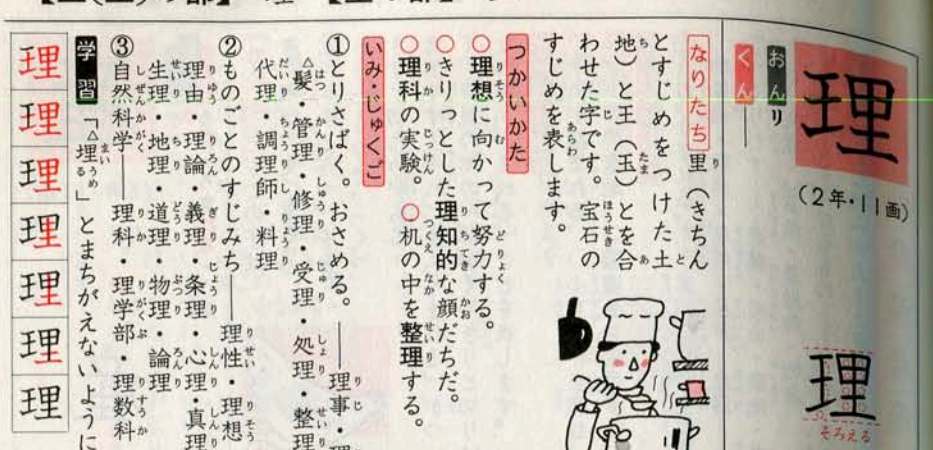 理
(2年・11画)
理
そろえる
おん リ
くん ―
なりたち 里(きちん
とすじめをつけた土
地)と王(玉)とを合
わせた字です。宝石の
すじめを表します。
つかいかた
○理想に向かって努力する。
○きりっとした理知的な顔だちだ。
○理科の実験。○机の中を整理する。
いみ・じゅくご
①とりさばく。おさめる。―理事・理
△髪・管理・修理・受理・処理・整理
代理・調理師・料理
②ものごとのすじみち―理性・理想
理由・理論・義理・条理・心理・真理
生理・地理・道理・物理・論理
③自然科学―理科・理学部・理数科
学習 「△埋」とまちがえないように
理
理
理
理
理
理
理